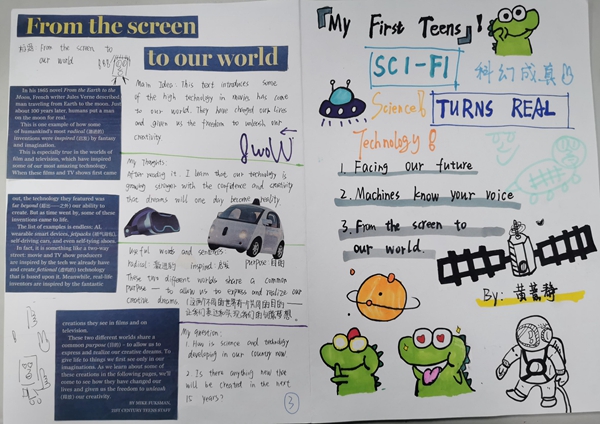 From the screen
to our world
标题 From the screen to
our world
In his 1865 novel From the Earth to the
Moon, French writer Jules Verne described
man traveling from Earth to the moon. Just
about 100 years later, humans put a man
on the moon for real.
This is one example of how some
of humankind's most radical
inventions were inspired by fantasy
and imagination.
This is especially true in the worlds of
film and television, which have inspired
some of our most amazing technology.
When these films and TV shows first came
out, the technology they featured was
far beyond our ability to
create. But as time went by, some of these
inventions came to life.
The list of examples is endless: AI,
wearable smart devices, jetpacks,
self-driving cars, and even self-tying shoes.
In fact, it is something like a two-way
street: movie and TV show producers
are inspired by the tech we already have
and create fictional technology
that is based upon it. Meanwhile, real-life
inventors are inspired by the fantastic
creations they see in films and on
television.
These two different worlds share a
common purpose – to allow us to
express and realize our creative dreams. To
give life to things we first see only in our
imaginations. As we learn about some of
these creations in the following pages, we'll
come to see how they have changed our
lives and given us the freedom to unleash
our creativity.
BY MIKE FUKSMAN,
21ST CENTURY TEENS STAFF
Main Idea: This text introduces some
of the high technology in movies has come
to our world. They have changed our lives
and given us the freedom to unleash our
creativity.
wow
My thoughts:
After reading it, I learn that our technology is
growing stronger with the confidence and creativity
that dreams will one day become reality.
Useful words and sentences
radical: 激进的 inspired: 启发 purpose 目的
These two different worlds share a common
purpose — to allow us to express and realize our
creative dreams.
My question:
1. How is science and technology
developing in our country now
2. Is there anything new that
will be created in the next
15 years?
3
『My First Teens』!
SCI-FI
科幻成真
Science!
TURNS REAL
Technology!
1. Facing our future
2. Machines know your voice
3. From the screen to
our world
By: